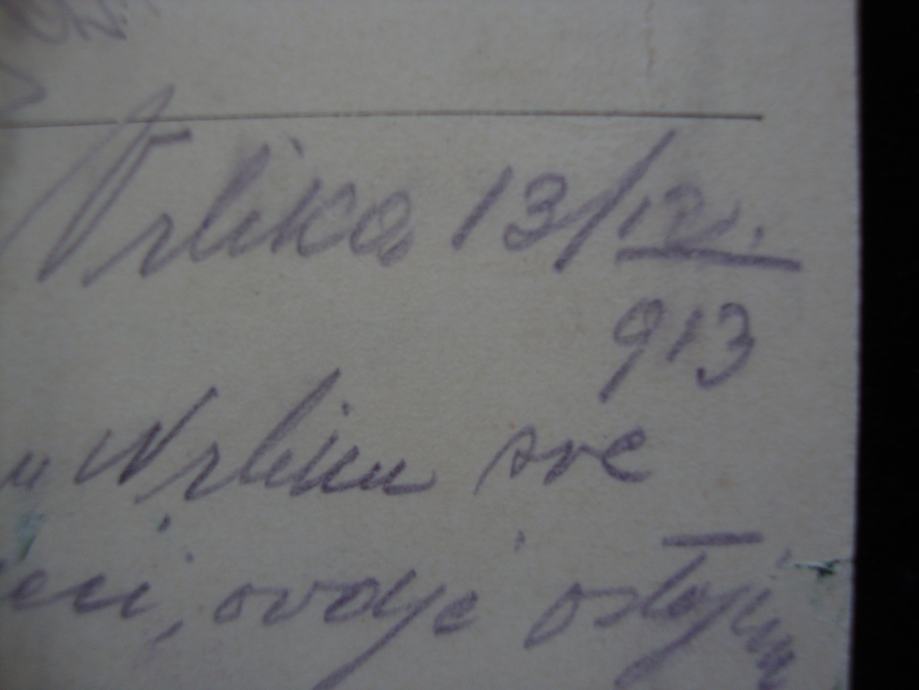 Vrlika 13/12.
913
u Vrliku sve
ovdje ostajem